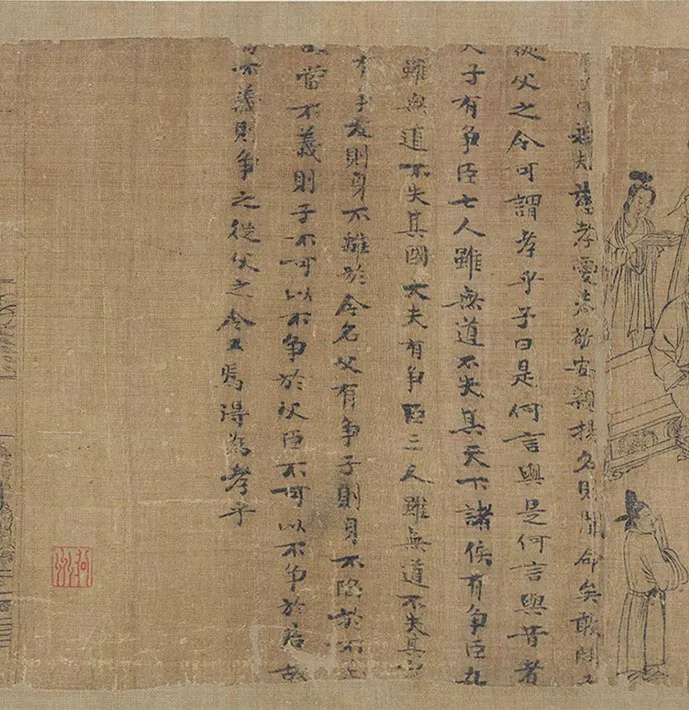 夫慈孝愛恭敬安親揚名則聞命矣敢問
從父之令可謂孝乎子曰是何言與是何言與昔者
天子有争臣七人雖無道不失其天下諸侯有争臣
雖無道不失其國大夫有争臣三人雖無道不失其
有争友則身不離於令名父有争子則身不陷於不
當不義則子不可以不争於父臣不可以不争於君故
當不義則争之從父之令又焉得為孝乎